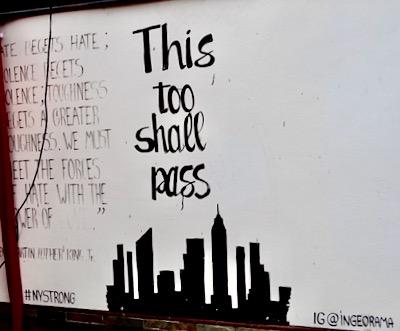 ATE BEGETS HATE;
OLENCE BEGETS
OLENCE; TOUGHNESS
EGETS A GREATER
OUGHNESS. WE MUST
EET THE FORCES
HATE WITH THE
WER OF ”
LUTHER KING, Jr.
#NYSTRONG
This
too
shall
pass
IG@INGEORAMA